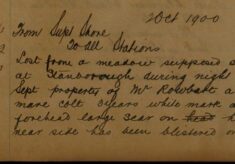 2 Oct 1900
From Supt Shore
To All Stations
Lost from a meadow supposed s
at Stanborough during nigh
Sept property of Mr Rowbatt a
mare colt 3 years white mark
forehead large scar on h
near side has been blistered on